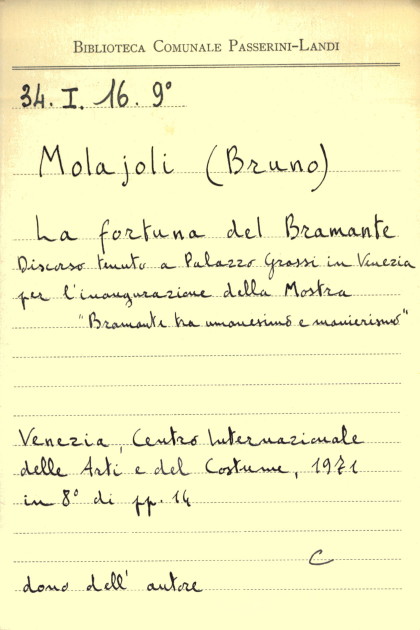 BIBLIOTECA COMUNALE PASSERINI-LANDI
34. I. 16. 9°
Molajoli (Bruno)
La fortuna del Bramante
Discorso tenuto a Palazzo Grassi in Venezia
per l'inaugurazione della Mostra
"Bramante tra umanesimo e manierismo"
Venezia, Centro Internazionale
delle Arti e del Costume, 1971
in 8° di pp. 14
C
dono dell' autore